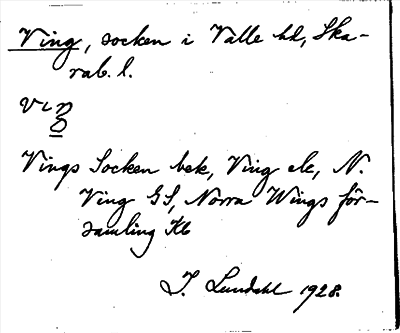 Ving, socken i Valle hd, Ska-
rab. l.
Vings Socken bek, Ving ek, N.
Ving GS, Norra Wings för-
samling Kb
I. Lundahl 1928.